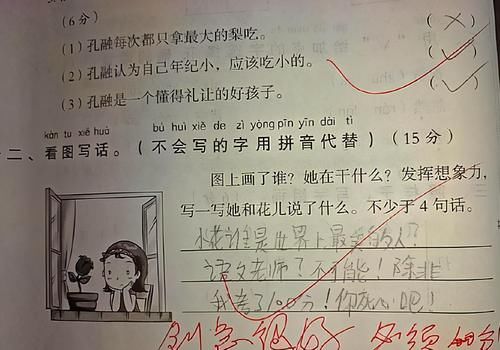 (6分)
(1)孔融每次都只拿最大的梨吃。 (×)
(2)孔融认为自己年纪小，应该吃小的。 (✓)
(3)孔融是一个懂得礼让的好孩子。 (✓)
kàn tú xiě huà bú huì xiě de zì yòng pīn yīn dài tì
二、看图写话。(不会写的字用拼音代替)(15分)
图上画了谁？她在干什么？发挥想象力，
写一写她和花儿说了什么。不少于4句话。
小花谁是世界上最美的人？
语文老师？不可能！除非
我考了100分！你死心吧！！
别急很好 必须